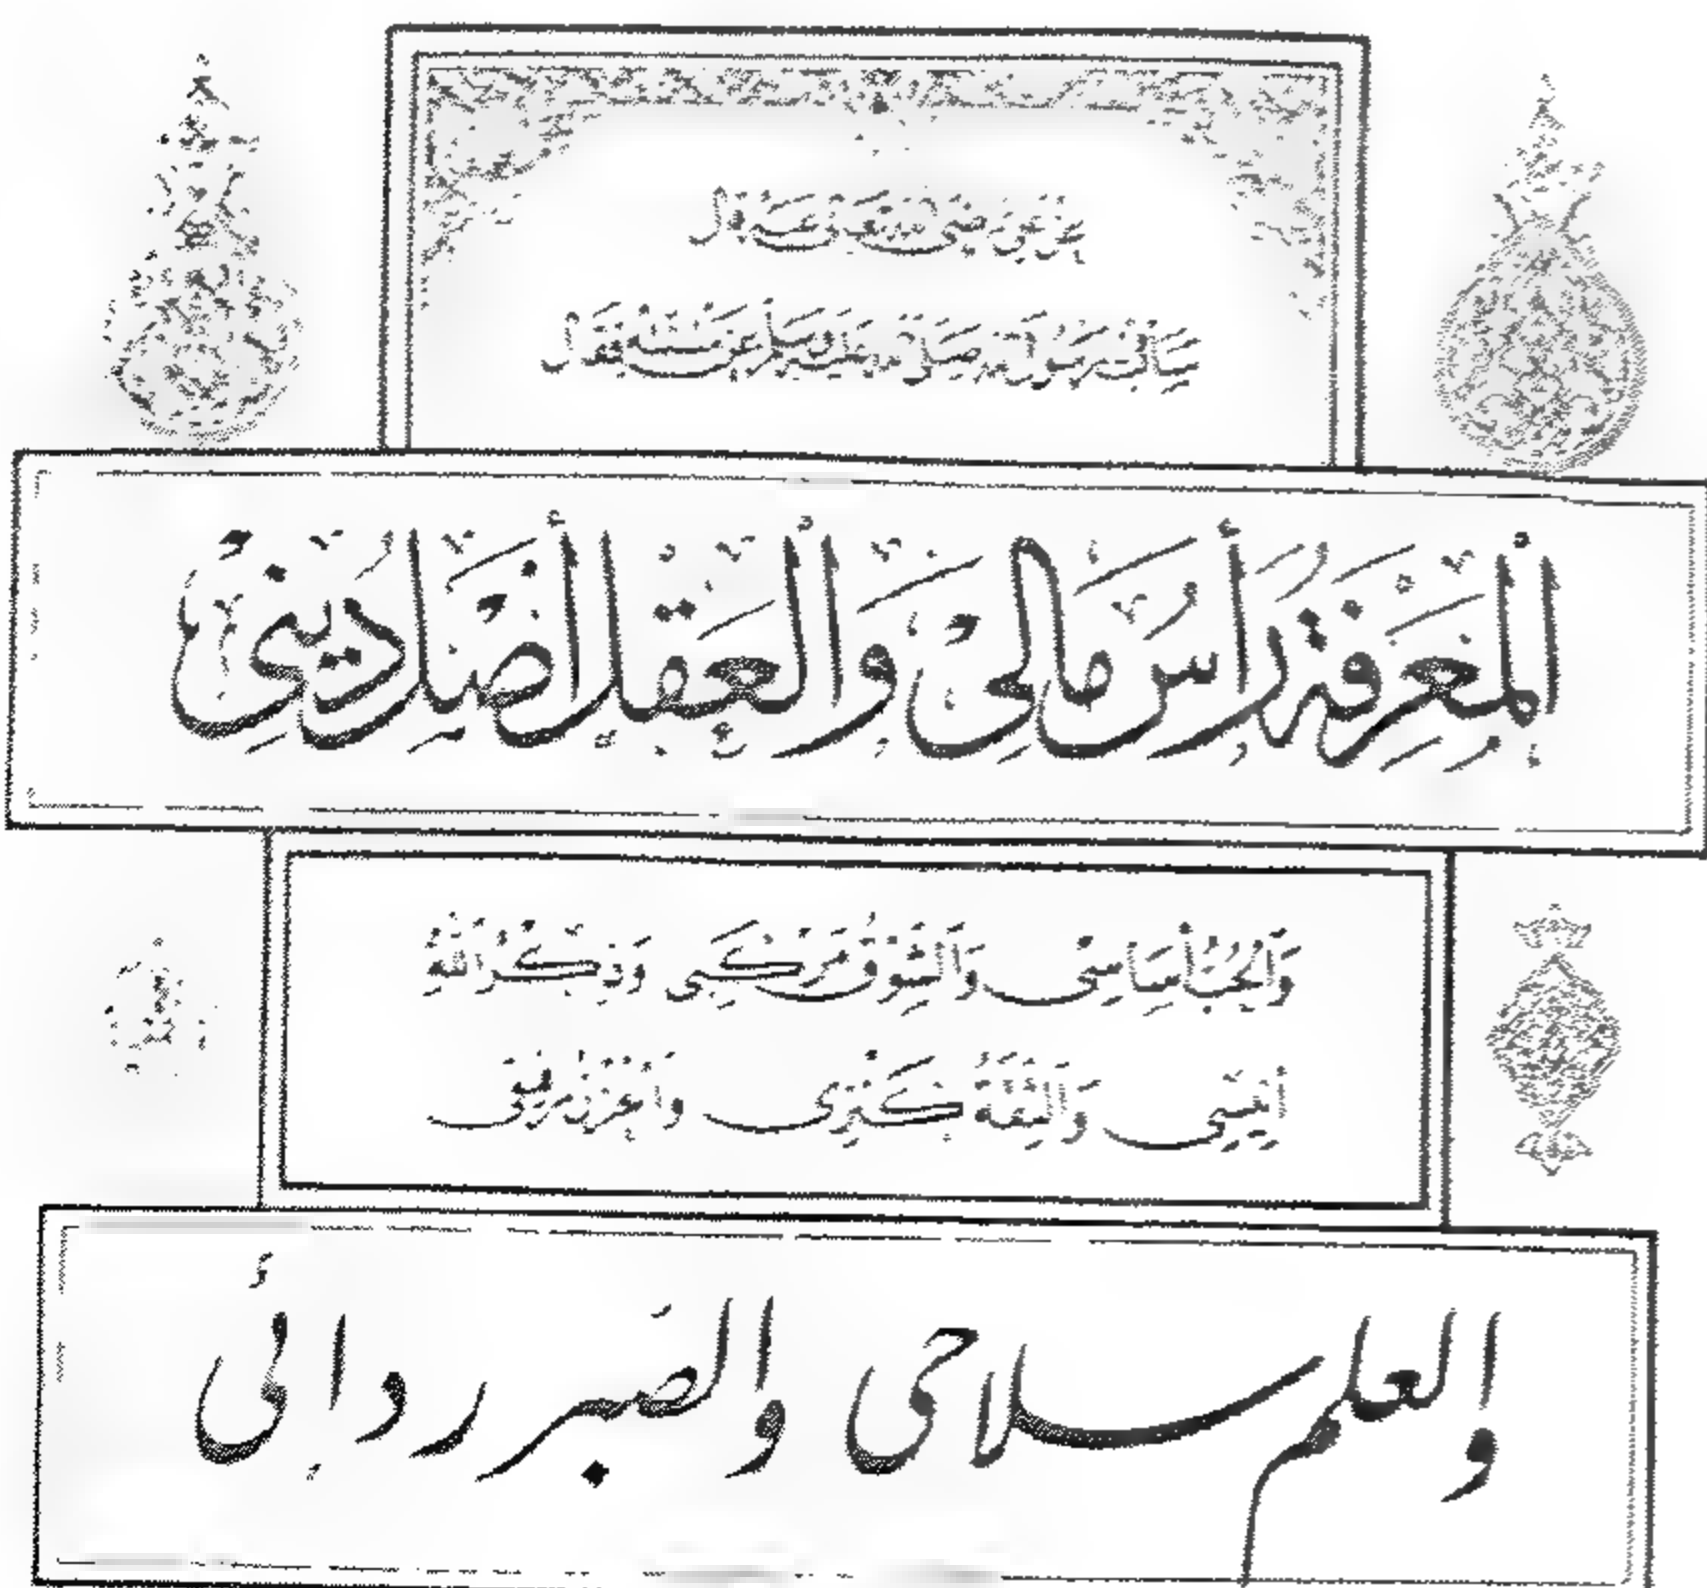 عن علي رضي الله تعالى عنه قال
سَأَلْتُ رَسُولَ اللهِ صَلَّى اللهُ عَلَيْهِ وَسَلَّمَ عَنْ سُنَّتِهِ فَقَالَ
اَلْمَعْرِفَةُ رَأْسُ مَالِي وَالْعَقْلُ أَصْلُ دِينِي
وَالْحُبُّ أَسَاسِي وَالشَّوْقُ مَرْكَبِي وَذِكْرُ اللهِ
أَنِيسِي وَالثِّقَةُ كَنْزِي وَالْحُزْنُ رَفِيقِي
والعلم سلاحي والصَبر ردائي